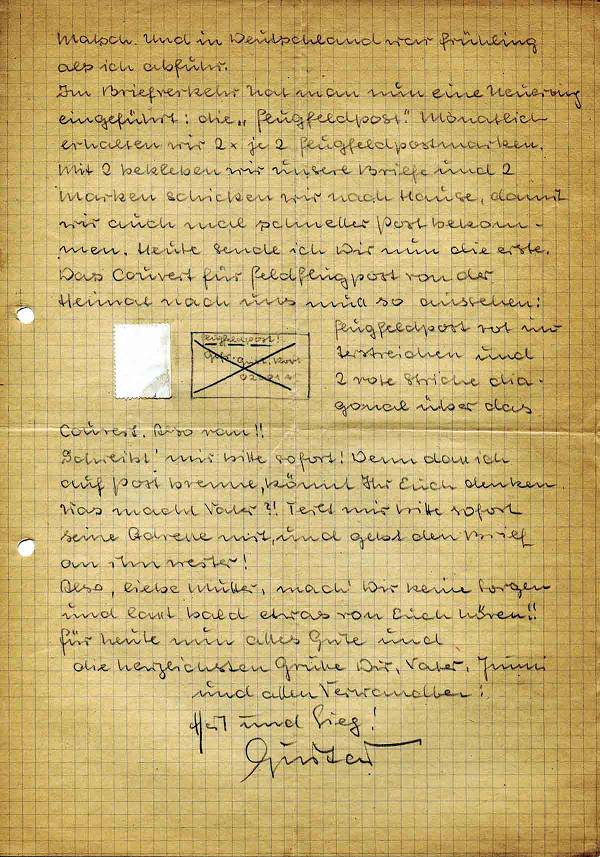 Matsch. Und in Deutschland war Frühling
als ich abfuhr.
Im Briefverkehr hat man nun eine Neuerung
eingeführt: die „Flugfeldpost." Monatlich
erhalten wir 2 x je 2 Flugfeldpostmarken.
Mit 2 bekleben wir unsere Briefe und 2
Marken schicken wir nach Hause, damit
wir auch mal schneller Post bekom-
men. Heute sende ich Dir nun die erste.
Das Couvert für Feldflugpost von der
Heimat nach uns muß so aussehen:
Flugfeldpost!
Flugfeldpost rot un-
terstreichen und
2 rote Striche dia-
gonal über das
Couvert. Also ran!!
Schreibt mir bitte sofort! Denn daß ich
auf Post brenne, könnt Ihr Euch denken.
Was macht Vater?! Teilt mir bitte sofort
seine Adresse mit, und gebt den Brief
an ihn weiter!
Also, liebe Mutter, mach' Dir keine Sorgen
und laßt bald etwas von Euch hören!!
Für heute nun alles Gute und
die herzlichsten Grüße Dir, Vater,
und allen Verwandten:
Heil und Sieg!
Gustav